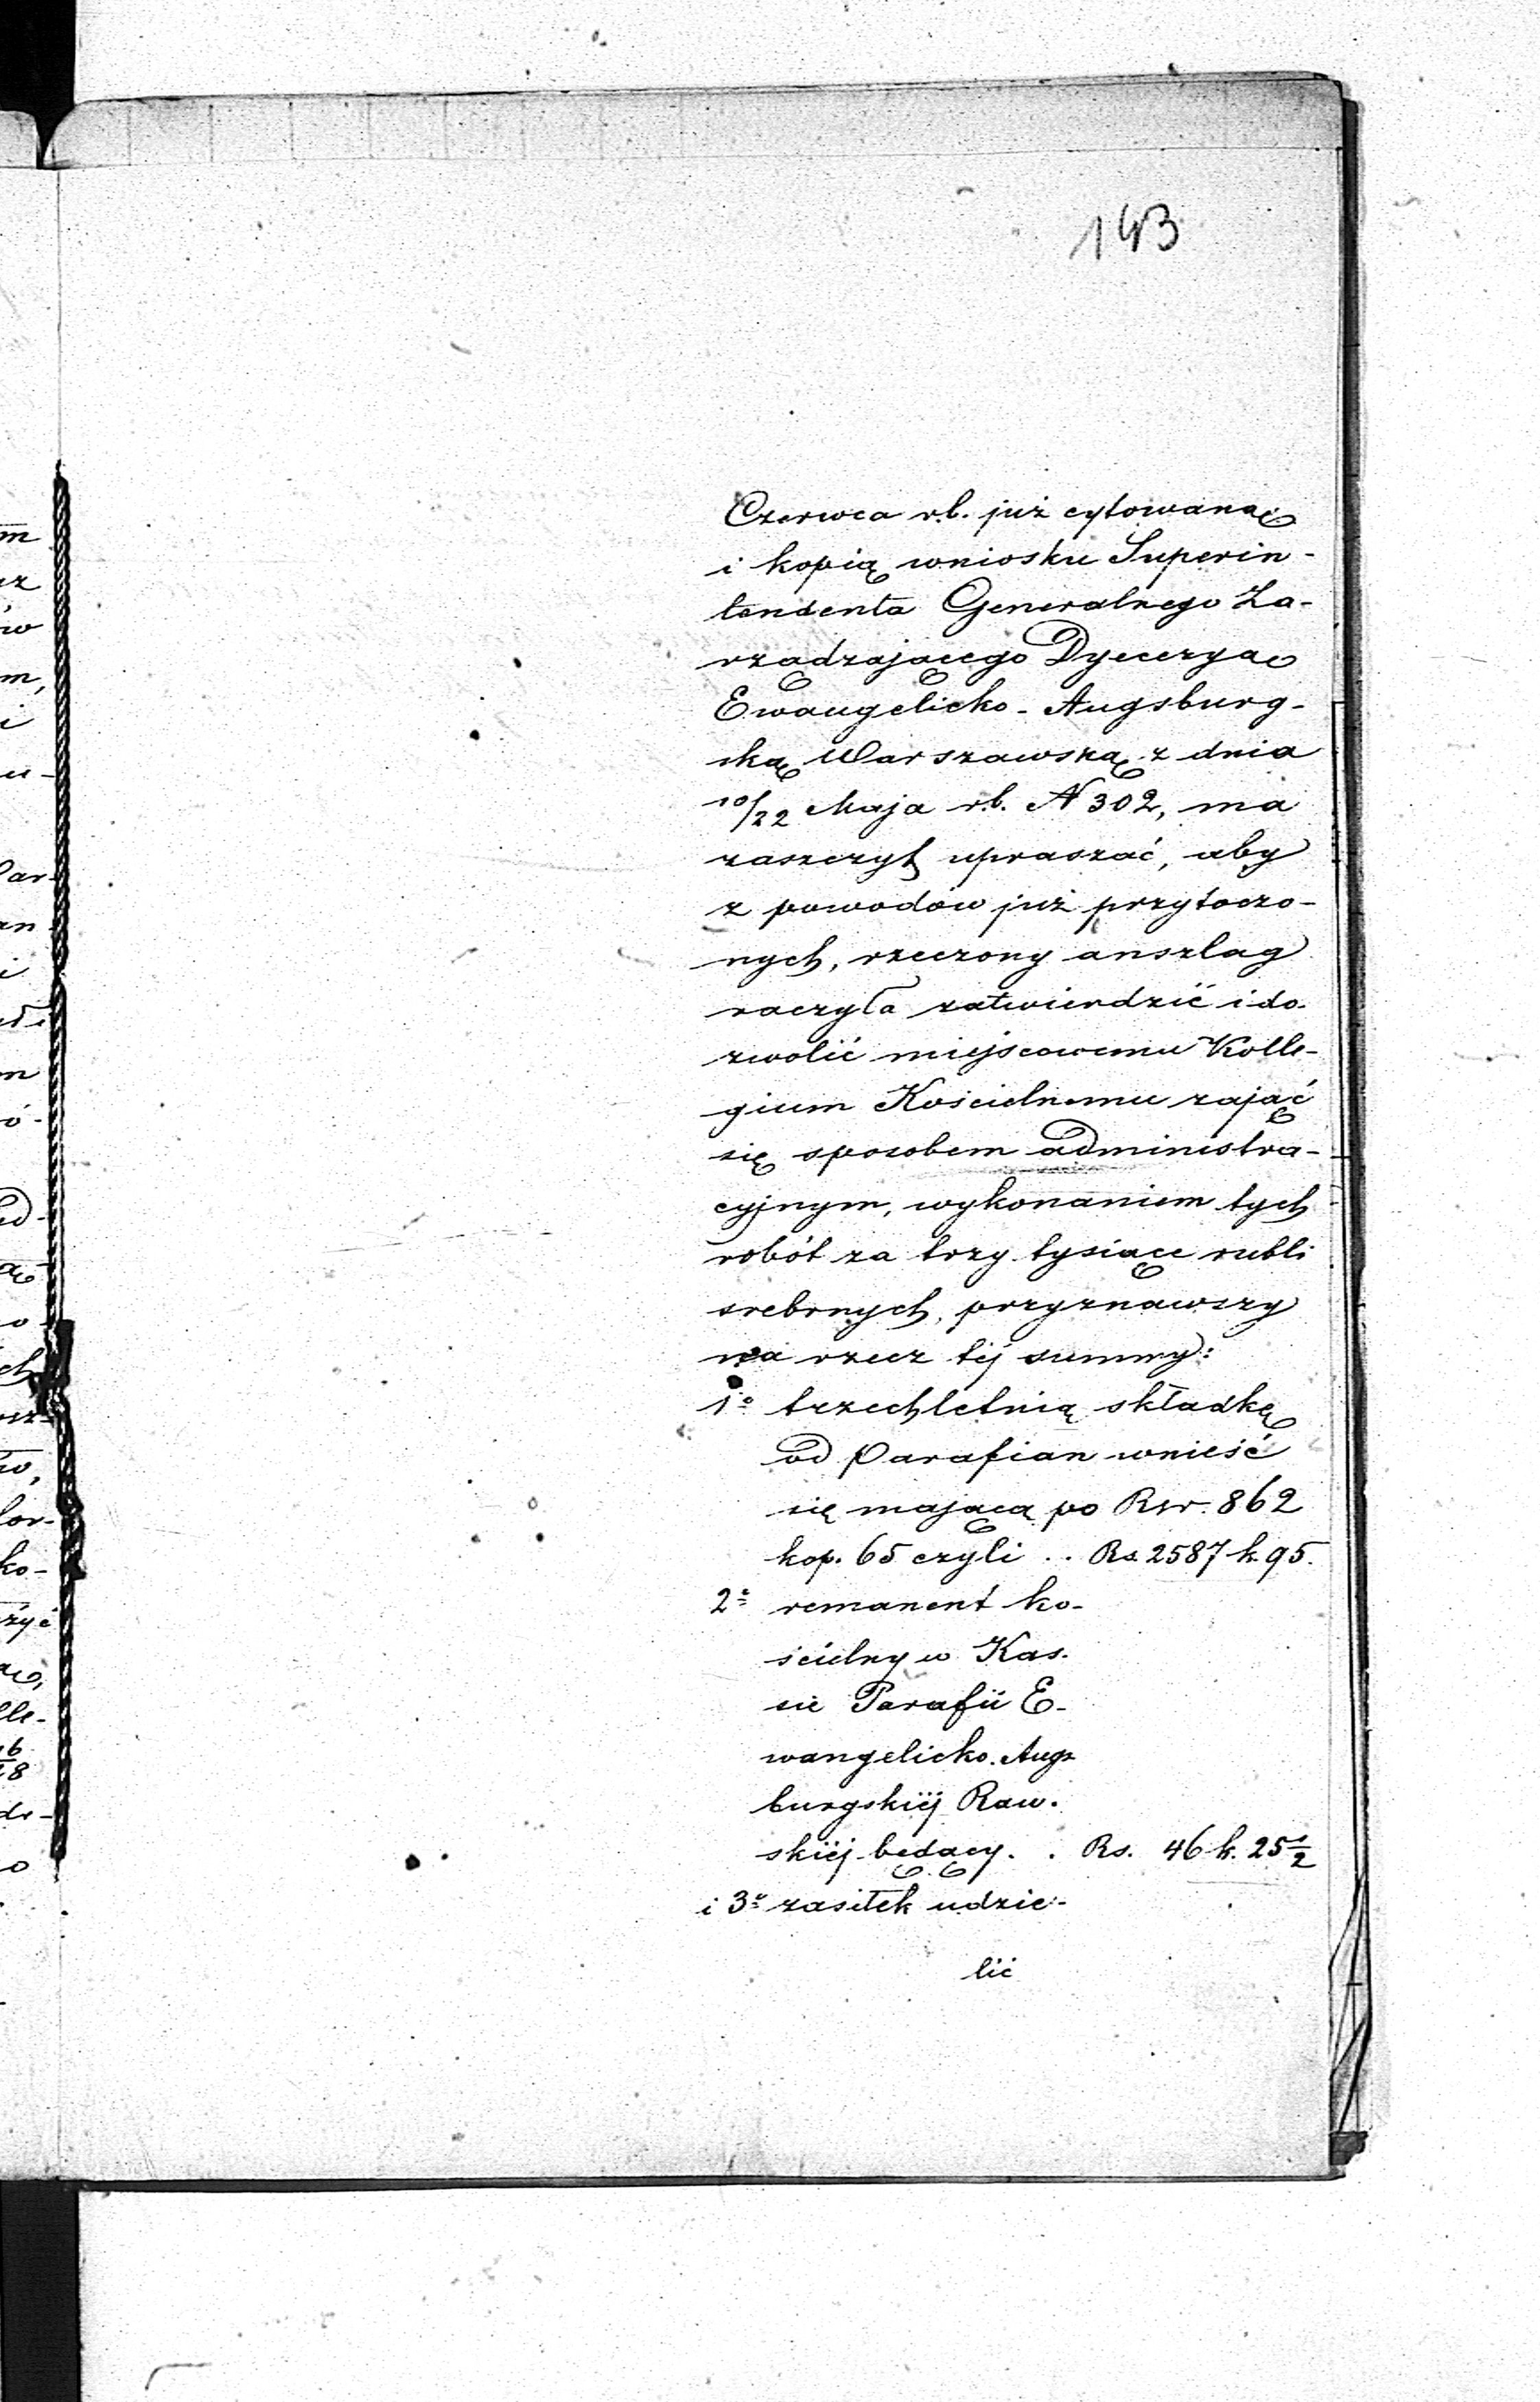 143
Czerwca r.b. już cytowaną
i kopią wniosku Superin-
tendenta Generalnego Za-
rządzającego Dyecezyą
Ewangelicko-Augsburg-
ską Warszawską z dnia
10/22 Maja r.b. N 302, ma
zaszczyt upraszać, aby
z powodów już przytoczo-
nych, rzeczony anszlag
raczyła zatwierdzić i do-
zwolić miejscowemu Kolle-
gium Kościelnemu zająć
się sposobem administra-
cyjnym, wykonaniem tych
robót za trzy tysiące rubli
srebrnych, przyznawszy
na rzecz téj summy:
1o trzechletnią składkę
od Parafian wnieść
się mającą po Rsr. 862
kop. 65 czyli .. Rs. 2587 k. 95.
2o remanent ko-
ścielny w Kas-
sie Parafii E-
wangelicko-Augs-
burgskiéj Raw-
skiéj będący . . Rs. 46 k. 25 1/2
i 3o zasiłek udzie-
lić